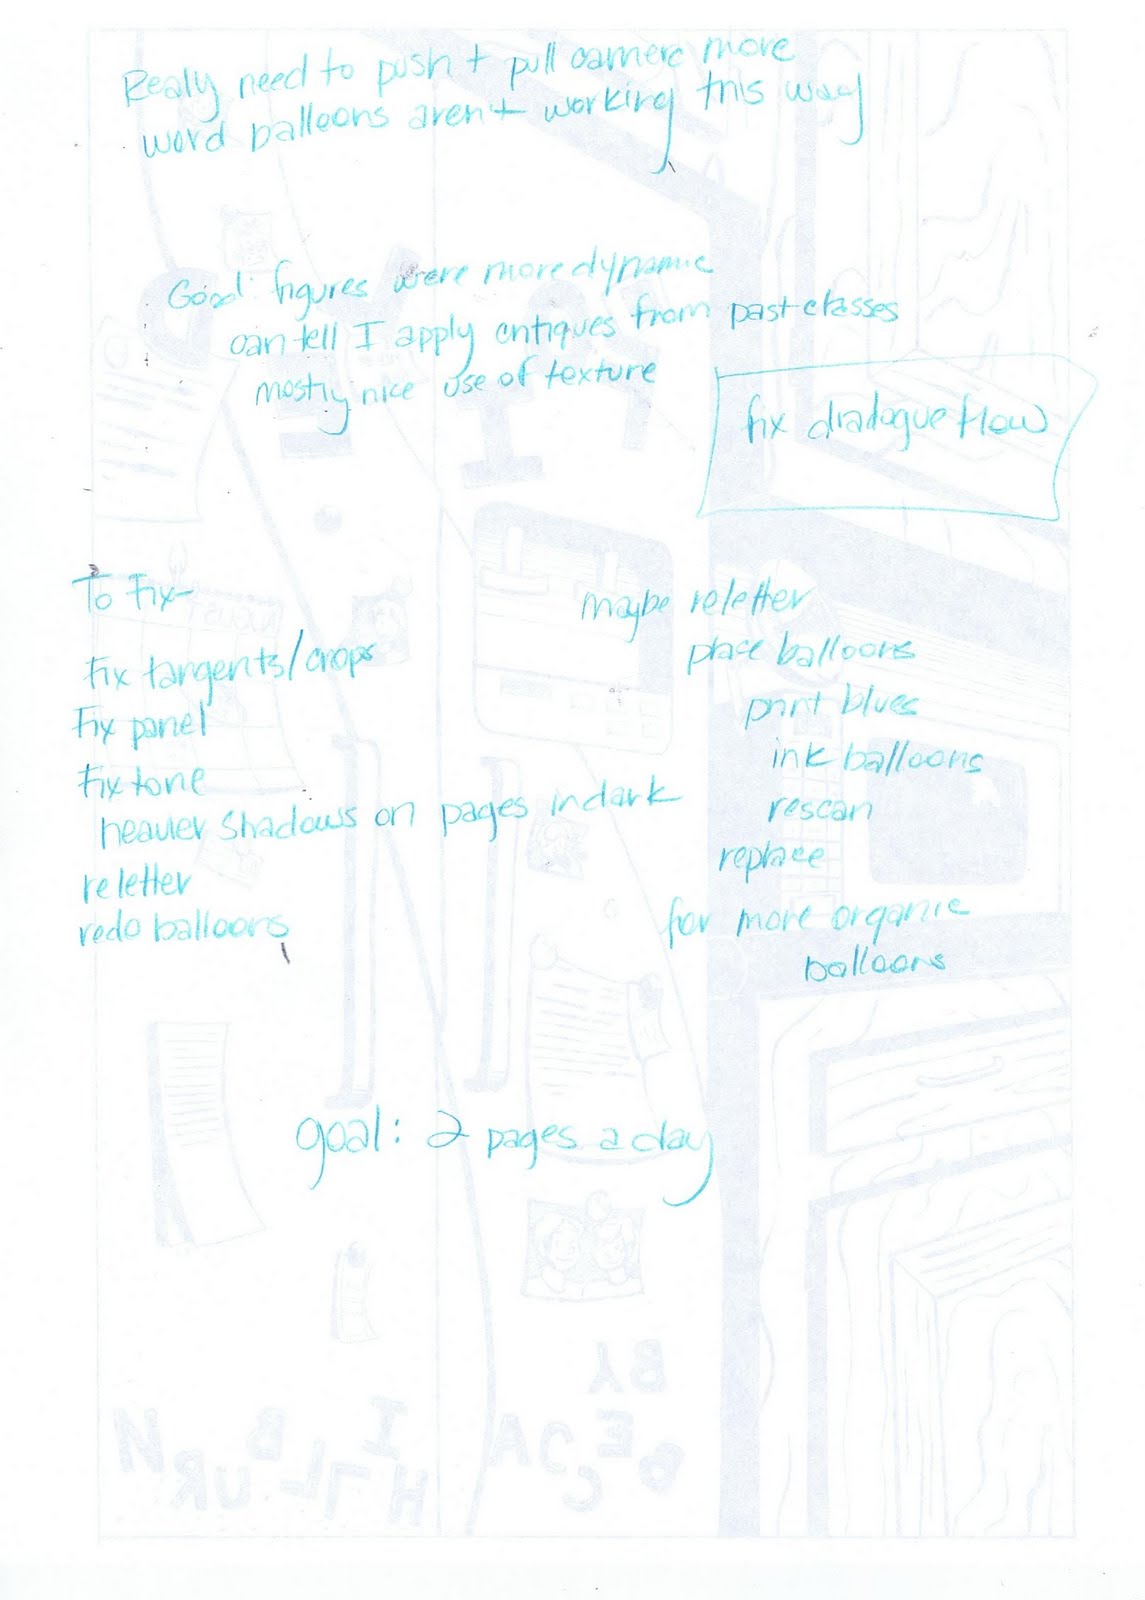 Realy need to push + pull camere more
word balloons aren't working this way
Good: figures were more dynamic
can tell I apply critiques from past classes
mostly nice use of texture
fix dialogue flow
To Fix-
Fix tangents/crops
Fix panel
Fix tone
heavier shadows on pages in dark
reletter
redo balloons
maybe reletter
place balloons
print blues
ink balloons
rescan
replace
for more organic
balloons
goal: 2 pages a day
BY
BECCA
HILBURN